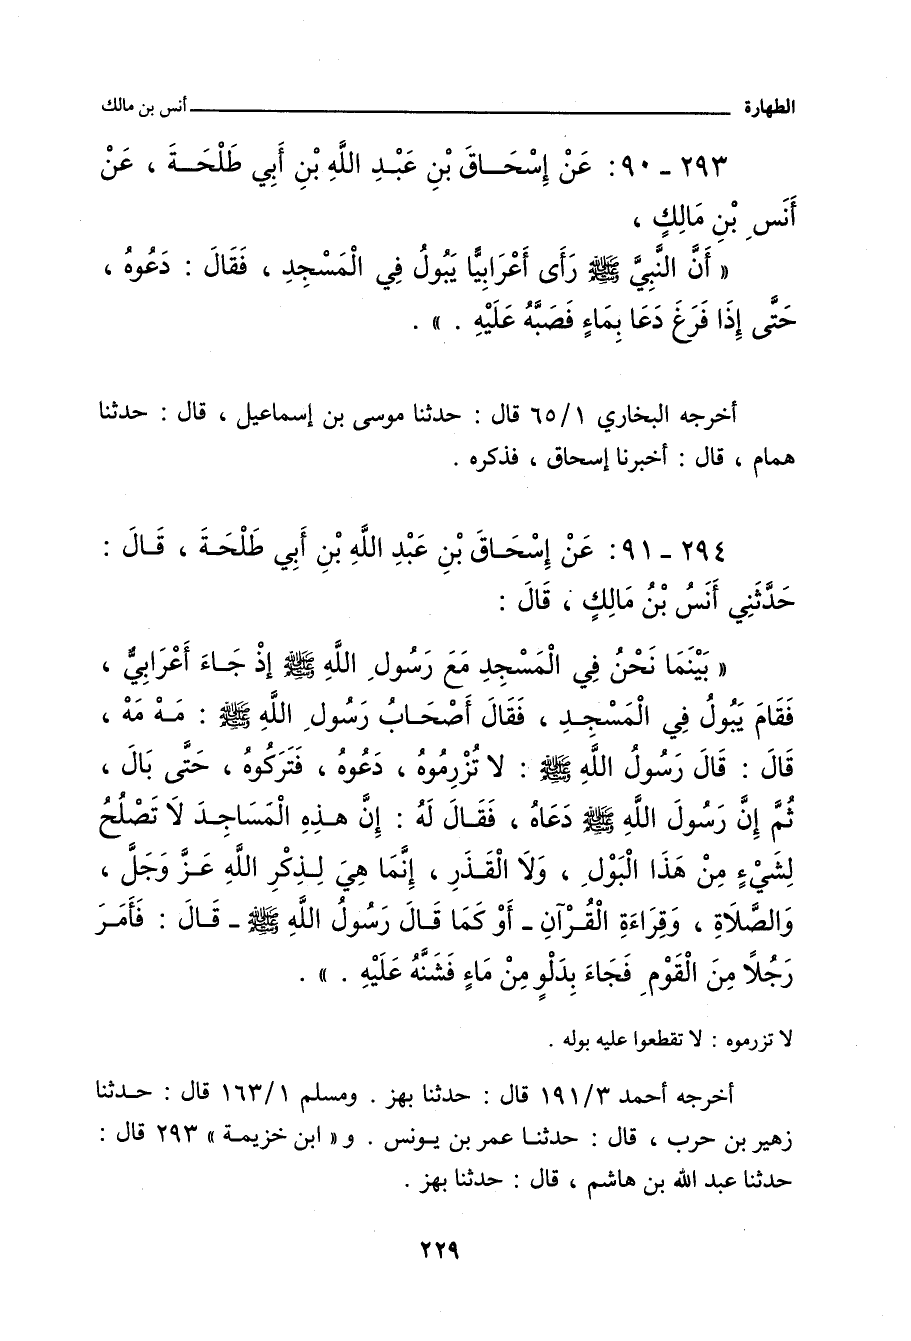 الطهارة ــــــــــ أنس بن مالك
٢٩٣ ـ ٩٠: عَنْ إِسْحَـاقَ بْنِ عَبْـدِ اللَّهِ بْنِ أَبِي طَلْحَـةَ ، عَنْ
أَنَسِ بْنِ مَالِكٍ ،
« أَنَّ النَّبِيَّ ﷺ رَأَى أَعْرَابِيًّا يَبُولُ فِي الْمَسْجِدِ ، فَقَالَ : دَعُوهُ ،
حَتَّى إِذَا فَرَغَ دَعَا بِمَاءٍ فَصَبَّهُ عَلَيْهِ . » .
أخرجه البخاري ٦٥/١ قال : حدثنا موسى بن إسماعيل ، قال : حدثنا
همام ، قال : أخبرنا إسحاق ، فذكره .
٢٩٤ ـ ٩١: عَنْ إِسْحَـاقَ بْنِ عَبْدِ اللَّهِ بْنِ أَبِي طَلْحَـةَ ، قَـالَ :
حَدَّثَنِي أَنَسُ بْنُ مَالِكٍ ، قَالَ :
« بَيْنَمَا نَحْنُ فِي الْمَسْجِدِ مَعَ رَسُولِ اللَّهِ ﷺ إِذْ جَـاءَ أَعْرَابِيٌّ ،
فَقَامَ يَبُولُ فِي الْمَسْجِـدِ ، فَقَالَ أَصْحَـابُ رَسُولِ اللَّهِ ﷺ : مَـهْ مَهْ ،
قَالَ : قَالَ رَسُولُ اللَّهِ ﷺ : لا تُزْرِمُوهُ ، دَعُوهُ ، فَتَرَكُوهُ ، حَتَّى بَالَ ،
ثُمَّ إِنَّ رَسُولَ اللَّهِ ﷺ دَعَاهُ ، فَقَالَ لَهُ : إِنَّ هـذِهِ الْمَسَاجِـدَ لَا تَصْلُحُ
لِشَيْءٍ مِنْ هَذَا الْبَوْلِ ، وَلَا الْقَـذَرِ ، إِنَّمَا هِيَ لِـذِكْرِ اللَّهِ عَـزَّ وَجَلَّ ،
وَالصَّلَاةِ ، وَقِرَاءَةِ الْقُـرْآنِ ـ أَوْ كَمَا قَـالَ رَسُولُ اللَّهِ ﷺ ـ قَـالَ : فَأَمَـرَ
رَجُلاً مِنَ الْقَوْمِ فَجَاءَ بِدَلْوٍ مِنْ مَاءٍ فَشَنَّهُ عَلَيْهِ . » .
لا تزرموه : لا تقطعوا عليه بوله .
أخرجه أحمد ١٩١/٣ قال : حدثنا بهز . ومسلم ١٦٣/١ قال : حـدثنا
زهير بن حرب ، قال : حدثنـا عمر بن يـونس . و« ابن خزيمـة » ٢٩٣ قال :
حدثنا عبد الله بن هاشم ، قال : حدثنا بهز .
٢٢٩